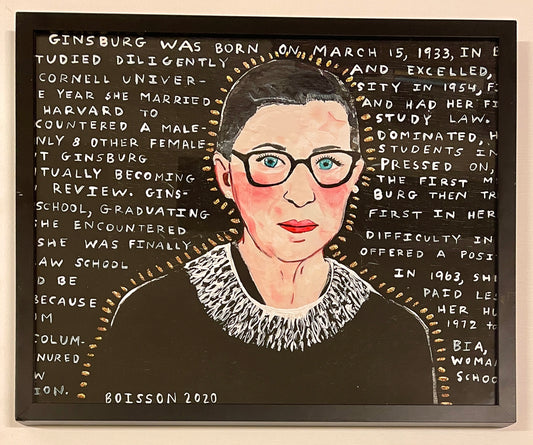 GINSBURG WAS BORN ON MARCH 15, 1933, IN
TUDIED DILIGENTLY AND EXCELLED,
CORNELL UNIVER- SITY IN 1954,
E YEAR SHE MARRIED AND HAD HER FI
HARVARD TO STUDY LAW.
COUNTERED A MALE- DOMINATED, H
NLY 8 OTHER FEMALE STUDENTS IN
T GINSBURG PRESSED ON,
TUALLY BECOMING THE FIRST M
REVIEW. GINS- BURG THEN TR
SCHOOL, GRADUATING FIRST IN HER
HE ENCOUNTERED DIFFICULTY IN
SHE WAS FINALLY OFFERED A POSI
AW SCHOOL IN 1963, SH
D BE PAID LE
BECAUSE HER HU
M 1972 to
COLUM- BIA,
NURED WOMA
W SCHOO
ION.
BOISSON 2020